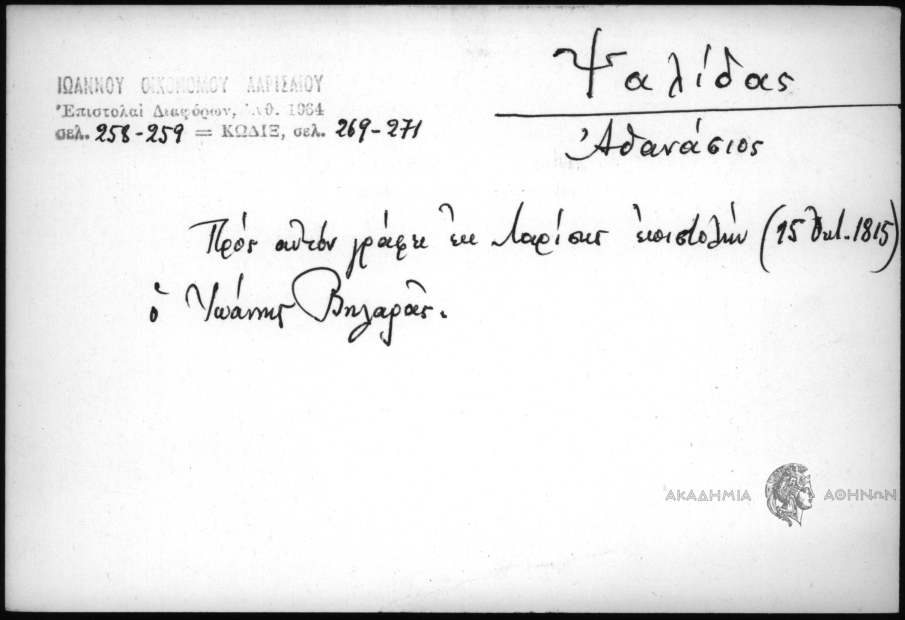 Ψαλίδας
Ἀθανάσιος
ΙΩΑΝΝΟΥ ΟΙΚΟΝΟΜΟΥ ΛΑΡΙΣΑΙΟΥ
Ἐπιστολαὶ Διαφόρων, Ἀθ. 1964
σελ. 258-259 = ΚΩΔΙΞ, σελ. 269-271
Πρός αὐτόν γράφει ἐκ Λαρίσης ἐπιστολήν (15 Ὀκτ. 1815)
ὁ Ἰωάννης Βηλαρᾶς.
ΑΚΑΔΗΜΙΑ ΑΘΗΝΩΝ